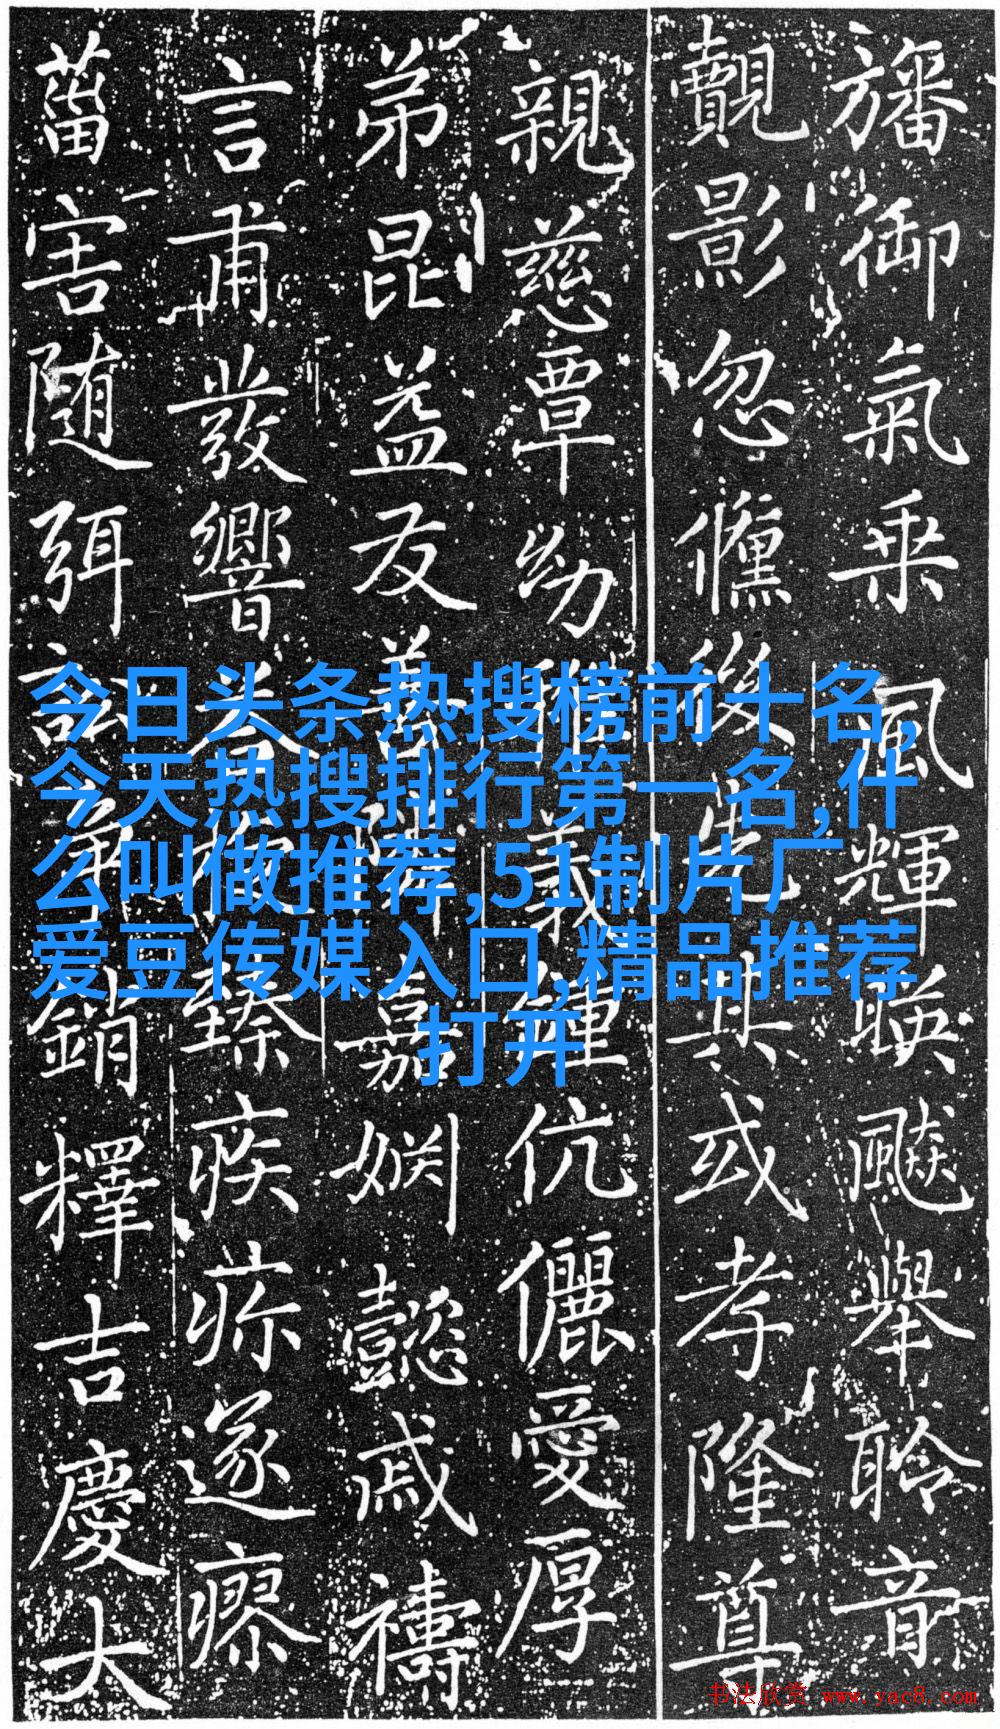 旛御氣乗風輝暎飈舉聆音
覿影忽儵後先其或孝隆尊
親慈覃幼雅義鍾伉儷愛厚
弟昆益友善隣嘉姻懿戚禱
言甫發響應臻疾疹遂瘳
菑害随弭訟爭銷釋吉慶大
今日头条热搜榜前十名,
今天热搜排行第一名,什
么叫做推荐,51制片厂
爱豆传媒入口,精品推荐
打开
书法欣赏 www.yac8.com